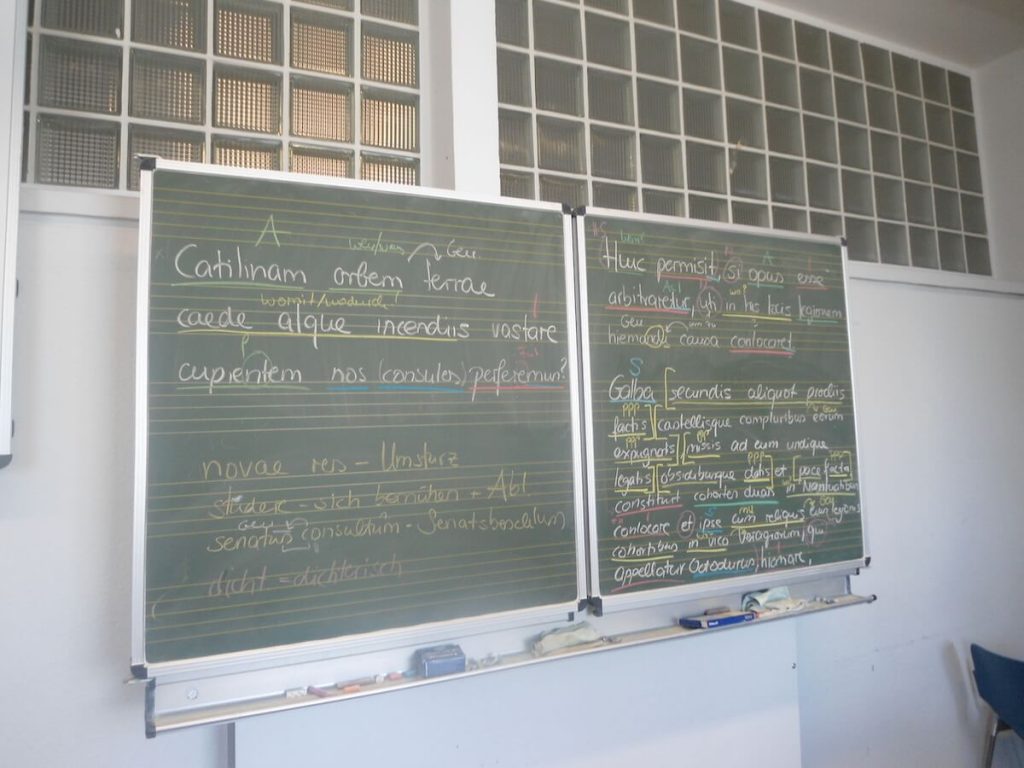 A
Gen.
Catilinam orbem terrae
caede atque incendiis vastare
P
cupientem nos (consules) perferemus?
novae res - Umsturz
studere - sich bemühen + Abl.
Gen.
senatus consultum - Senatsbeschluss
dicht = dichterisch
A
Huic permisit, si opus esse
arbitraretur, uti in his locis legionem
Gen
hiemandi causa conlocaret
S
Galba secundis aliquot proeliis
PPP
factis castellisque compluribus eorum
PPP PPP
expugnatis missis ad eum undique
PPP PPP
legatis obsidibusque datis et pace facta
constituit cohortes duas in Nantuatibus
S
conlocare et ipse cum reliquis eius legionis
cohortibus in vico Veragrorum, qui
appellatur Octodurus, hiemare,